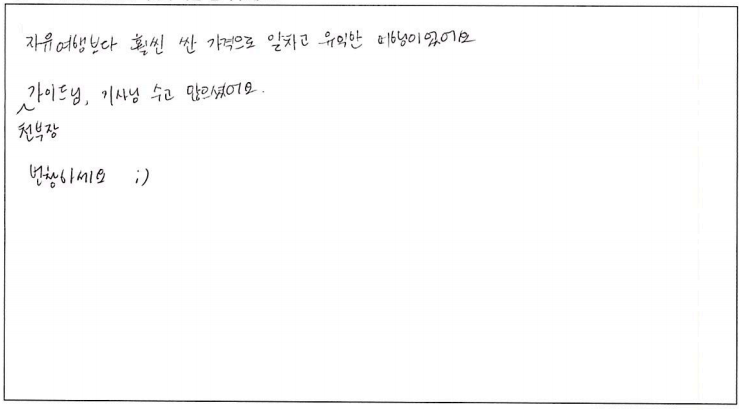 자유여행보다 훨씬 싼 가격으로 알차고 유익한 여행이었어요
가이드님, 기사님 수고 많으셨어요.
천부장
번창하세요 ;)